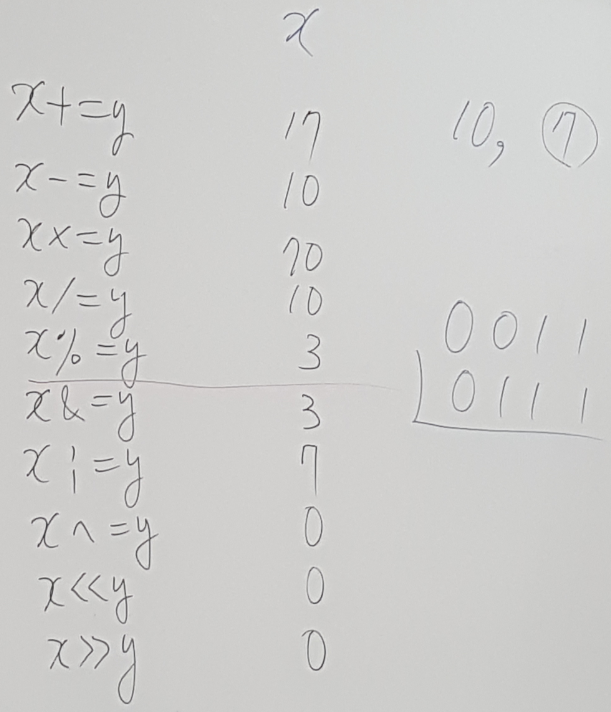 x
x+=y 17 10, 7
x-=y 10
x×=y 70
x/=y 10 0011
x%=y 3 0111
x&=y 3
x¦=y 7
x^=y 0
x<<y 0
x>>y 0